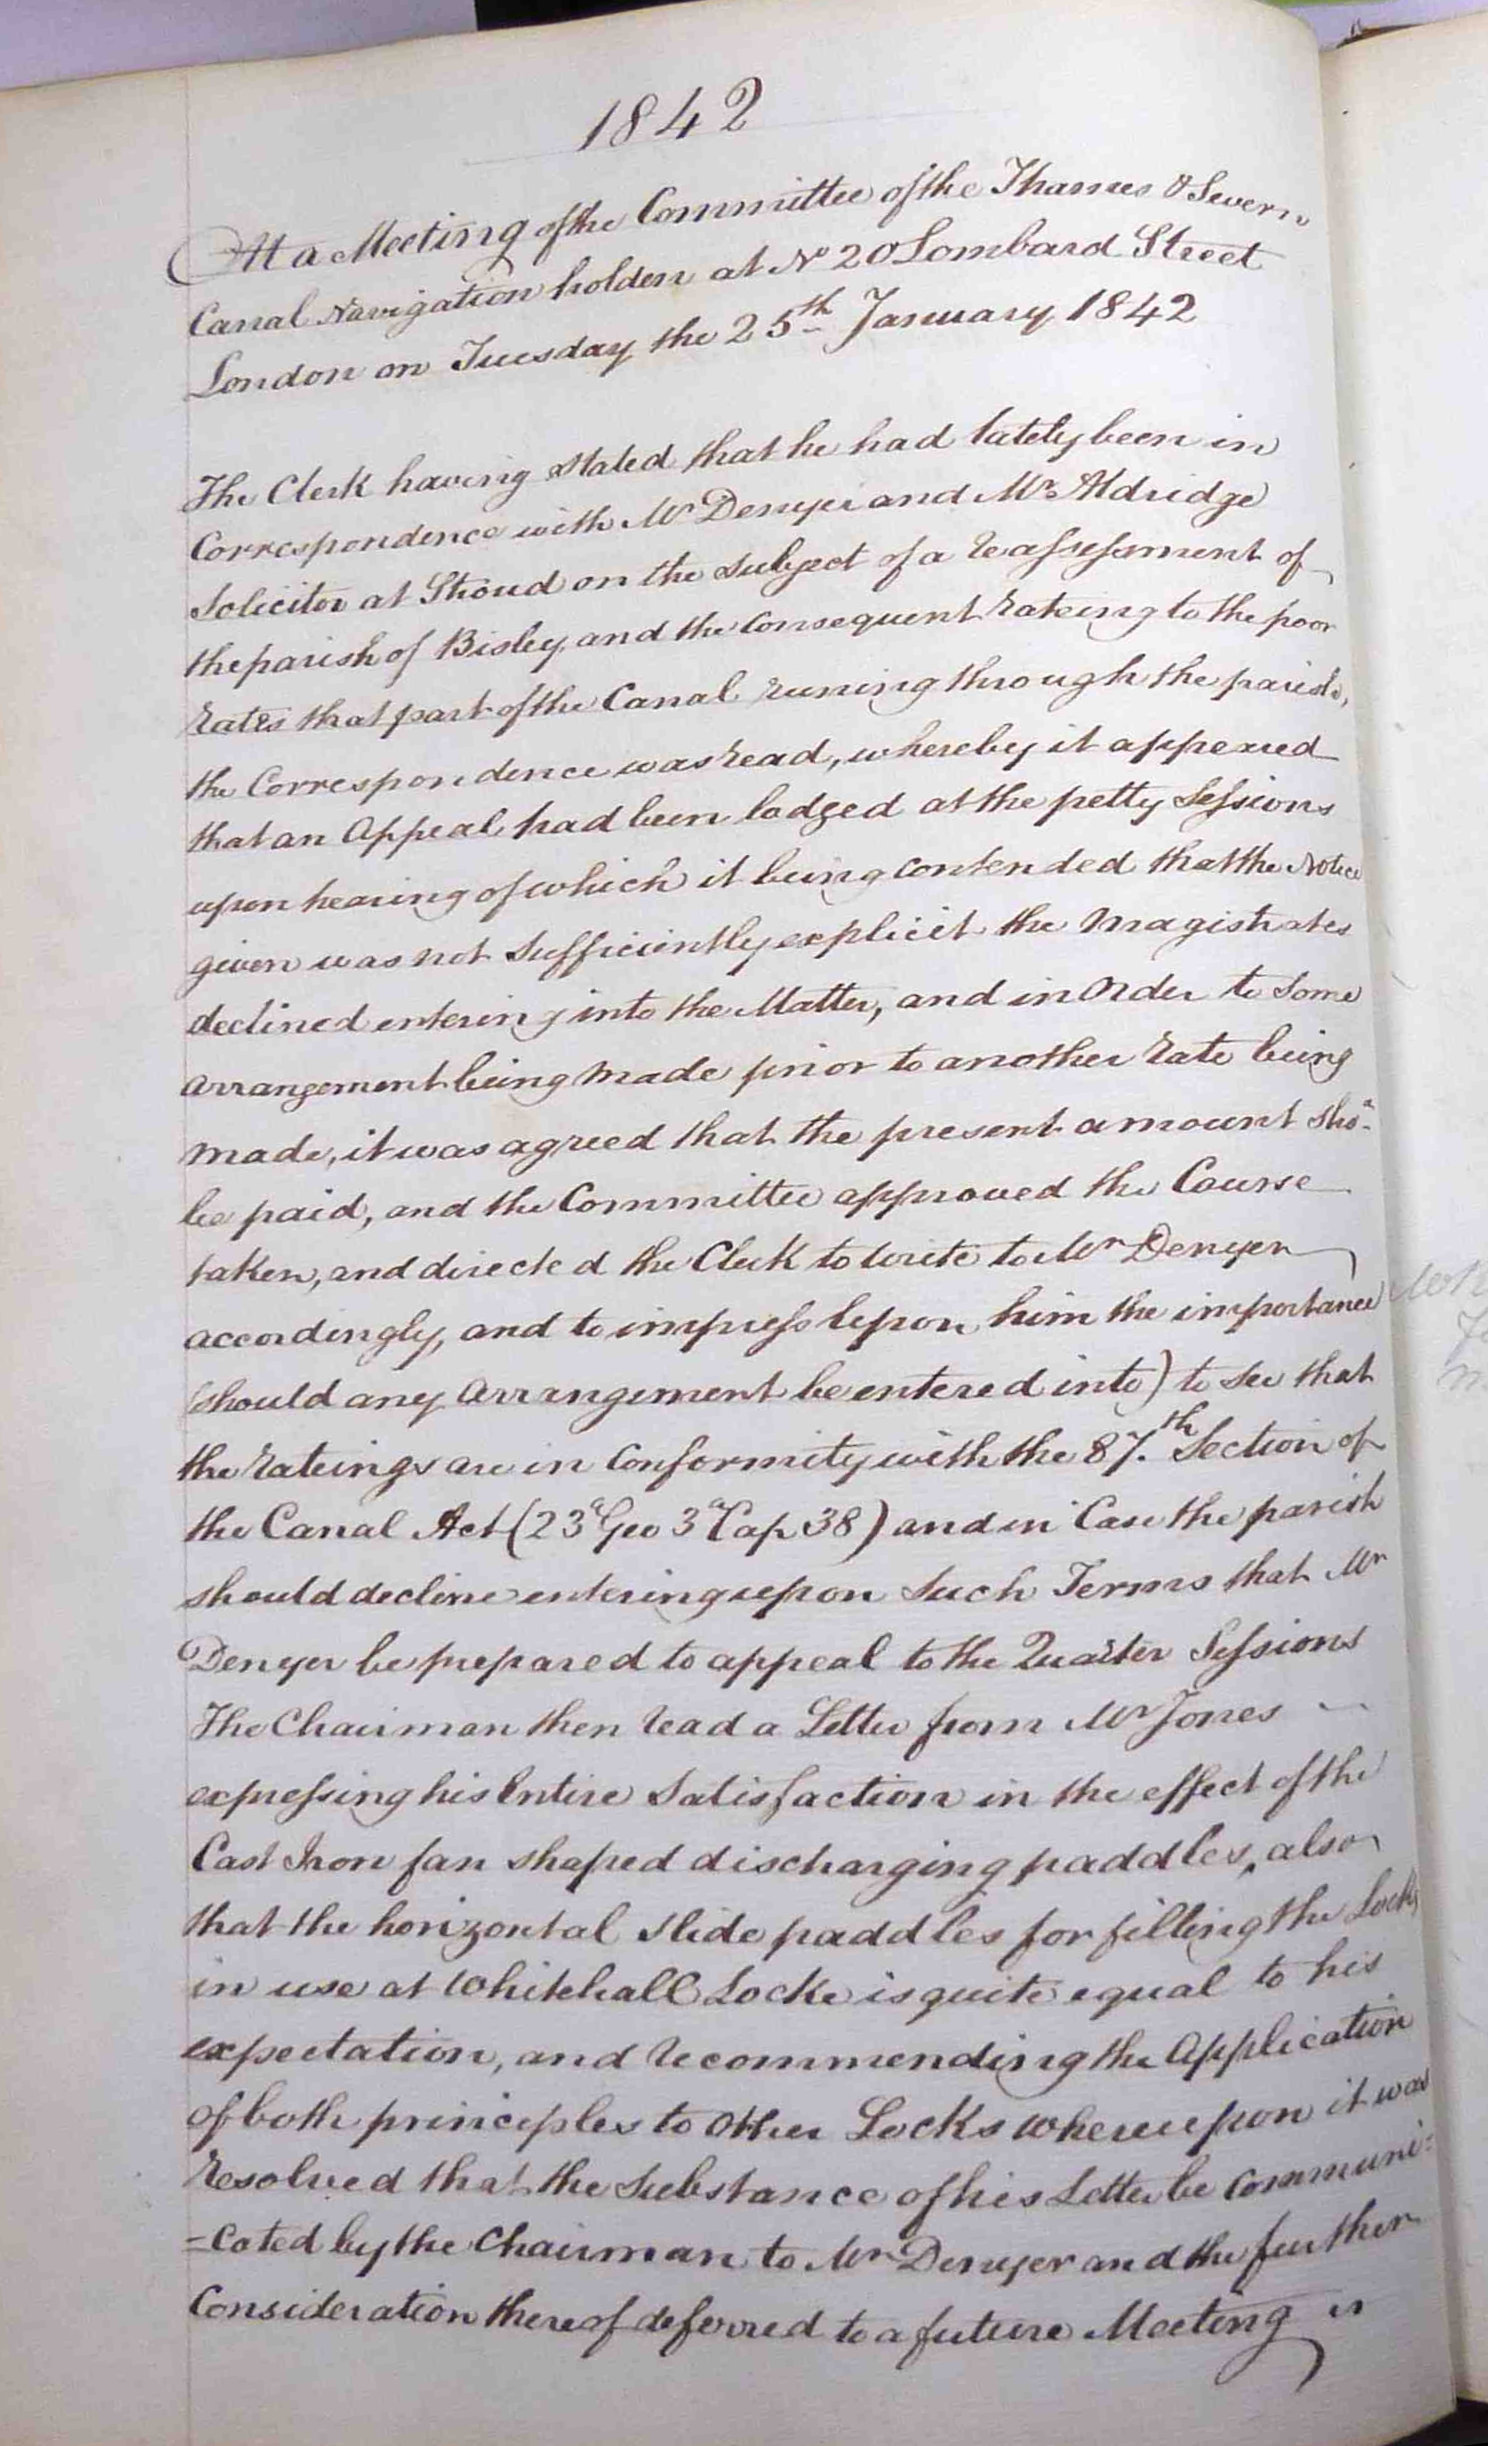 1842
At a Meeting of the Committee of the Thames & Severn
Canal Navigation holden at No 20 Lombard Street
London on Tuesday the 25th January 1842
The Clerk having stated that he had lately been in
Correspondence with Mr Denyer and Mr Aldridge
Solicitor at Stroud on the subject of a Reassessment of
the parish of Bisley and the consequent rateing to the poor
rates that part of the Canal runing through the parish,
the Correspondence was read, whereby it appeared
that an Appeal had been lodged at the petty Sessions
upon hearing of which it being contended that the Notice
given was not sufficiently explicit the Magistrates
declined entering into the Matter, and in Order to some
arrangement being made prior to another rate being
made, it was agreed that the present amount shod
be paid, and the Committee approved the Course
taken, and directed the Clerk to write to Mr Denyer
accordingly, and to impress upon him the importance
(should any arrangement be entered into) to see that
the rateings are in Conformity with the 87.th Section of
the Canal Act (23d Geo 3d Cap 38) and in Case the parish
should decline entering upon such Terms that Mr
Denyer be prepared to appeal to the Quarter Sessions
The Chairman then read a Letter from Mr Jones
expressing his Entire Satisfaction in the effect of the
Cast Iron fan shaped discharging paddles, also
that the horizontal slide paddles for filling the Locks
in use at Whitehall Locke is quite equal to his
expectation, and recommending the Application
of both principles to other Locks whereupon it was
resolved that the Substance of his Letter be Communi=
=cated by the Chairman to Mr Denyer and the further
Consideration thereof deferred to a future Meeting